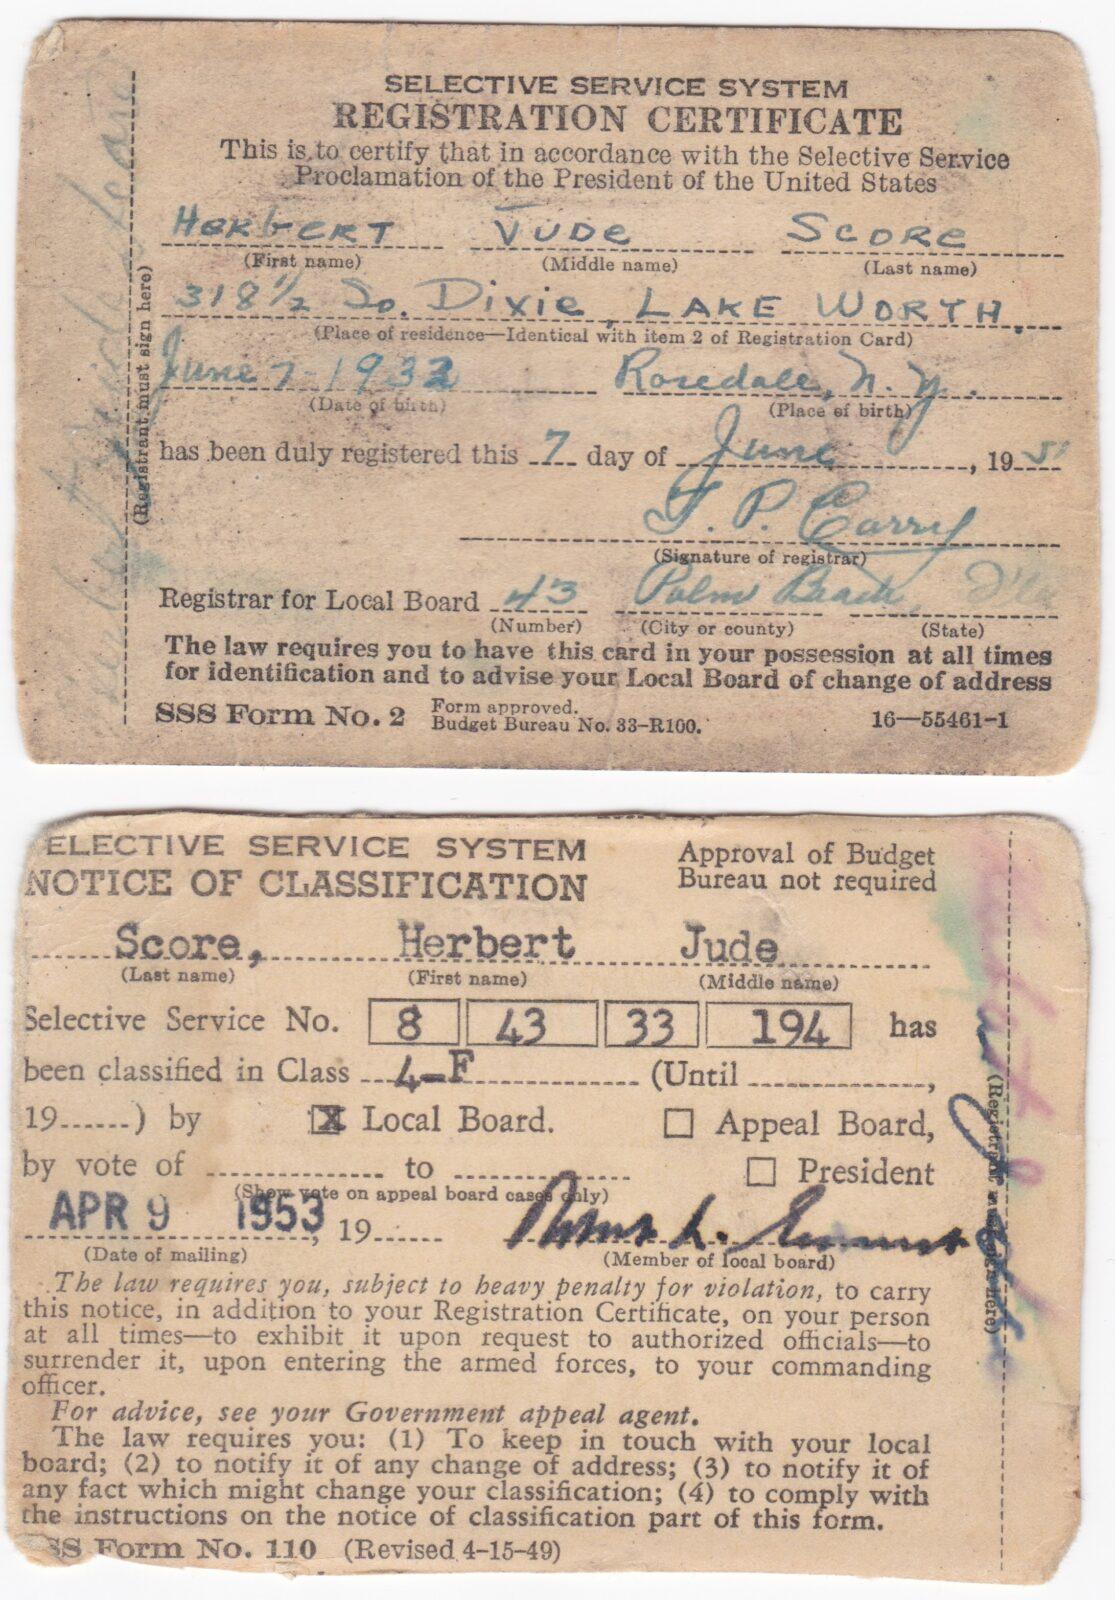 SELECTIVE SERVICE SYSTEM
REGISTRATION CERTIFICATE
This is to certify that in accordance with the Selective Service
Proclamation of the President of the United States
HERBERT JUDE SCORE
(First name) (Middle name) (Last name)
318 1/2 So. Dixie, LAKE WORTH.
(Place of residence—Identical with item 2 of Registration Card)
June 7-1932 Rosedale, N. Y.
(Date of birth) (Place of birth)
has been duly registered this 7 day of June, 19 51
J. P. Carry
(Signature of registrar)
Registrar for Local Board 43 Palm Beach, Fla
(Number) (City or county) (State)
The law requires you to have this card in your possession at all times
for identification and to advise your Local Board of change of address
SSS Form No. 2 Form approved. 16—55461-1
Budget Bureau No. 33-R100.
(Registrant must sign here)
Herbert Jude Score
ELECTIVE SERVICE SYSTEM Approval of Budget
NOTICE OF CLASSIFICATION Bureau not required
Score, Herbert Jude
(Last name) (First name) (Middle name)
Selective Service No. 8 43 33 194 has
been classified in Class 4-F (Until ,
19 ) by X Local Board. Appeal Board,
by vote of to President
(Show vote on appeal board cases only)
APR 9 1953, 19
(Date of mailing) (Member of local board)
The law requires you, subject to heavy penalty for violation, to carry
this notice, in addition to your Registration Certificate, on your person
at all times—to exhibit it upon request to authorized officials—to
surrender it, upon entering the armed forces, to your commanding
officer.
For advice, see your Government appeal agent.
The law requires you: (1) To keep in touch with your local
board; (2) to notify it of any change of address; (3) to notify it of
any fact which might change your classification; (4) to comply with
the instructions on the notice of classification part of this form.
SS Form No. 110 (Revised 4-15-49)